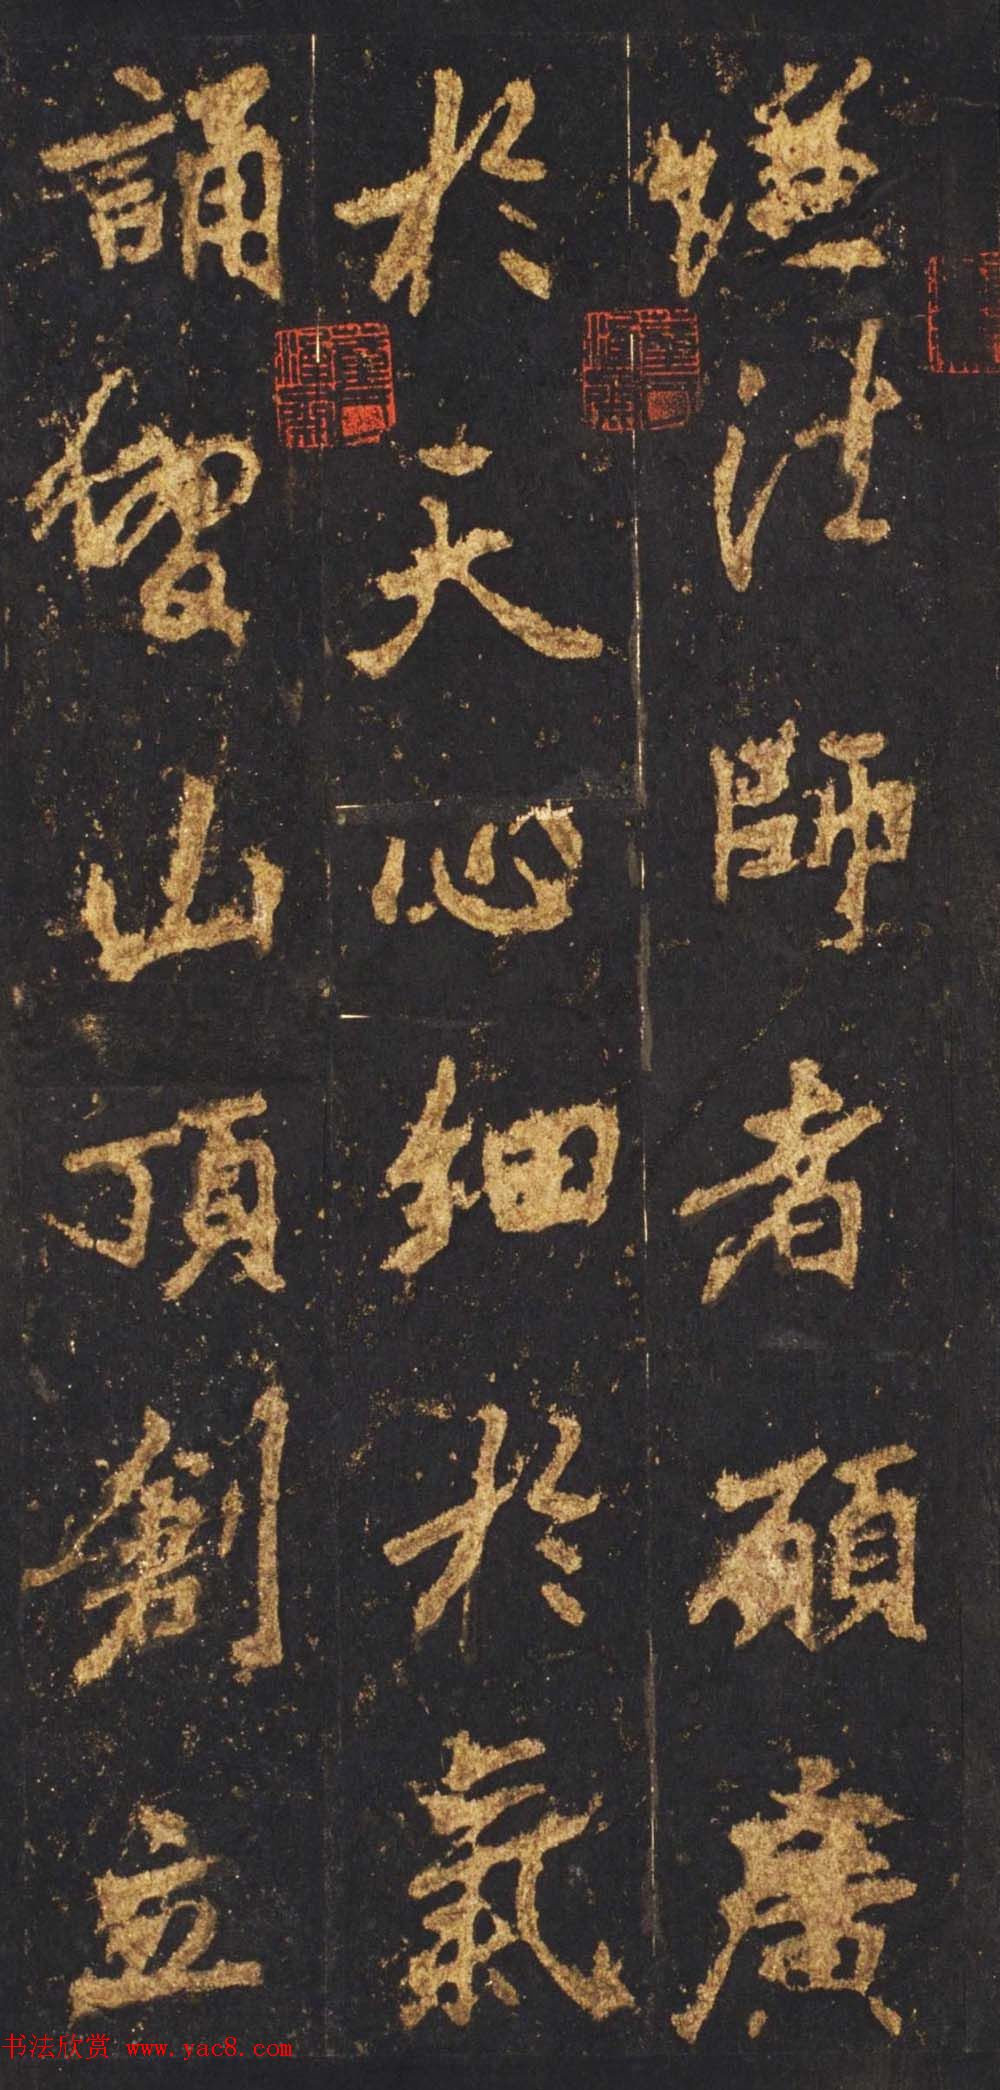 謙法師者願廣
於天心細於氣
誦習山頂創立
书法欣赏 www.yac8.com